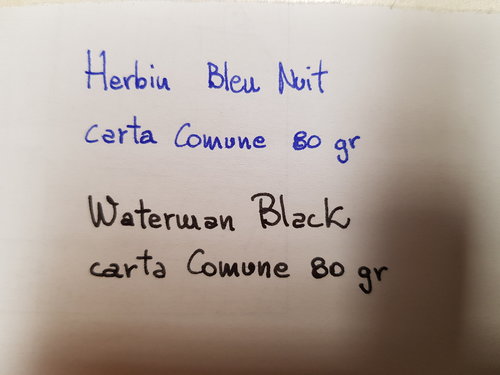 Herbin Bleu Nuit
carta Comune 80 gr
Waterman Black
carta Comune 80 gr